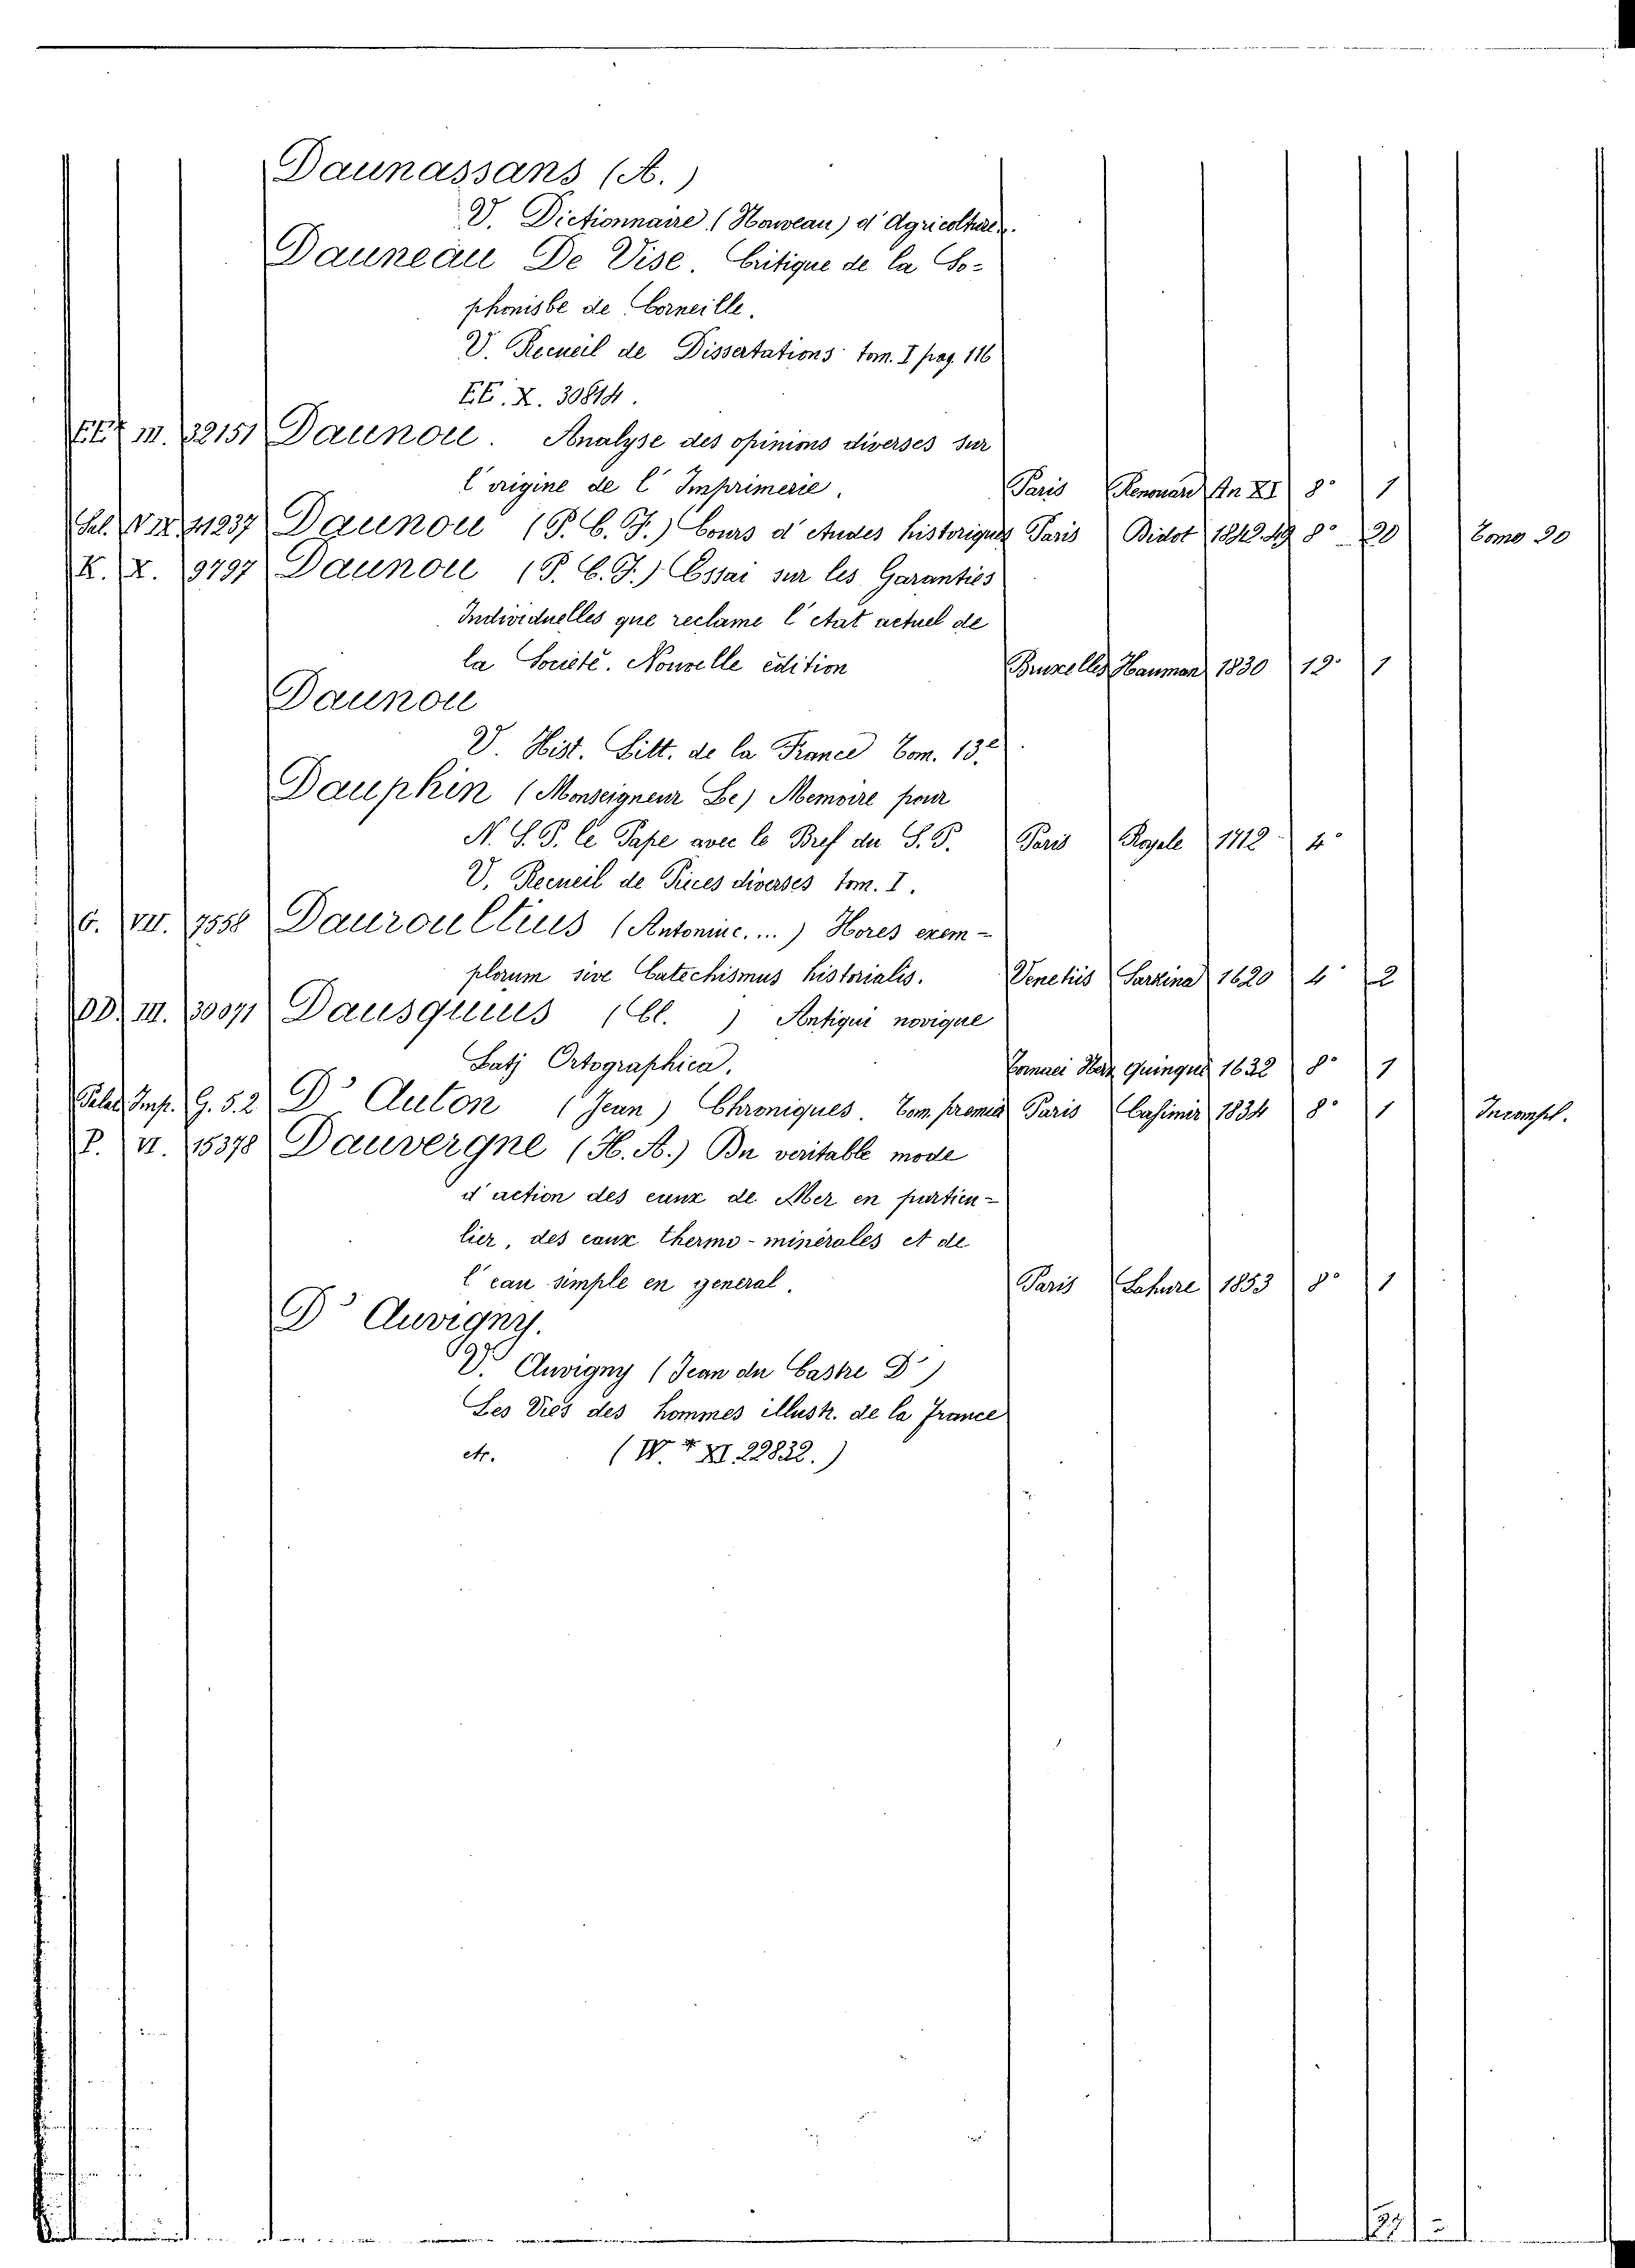 Daunassans (A.)
V. Dictionnaire (Nouveau) d'Agricolture.
Dauneau De Vise. Critique de la So-
phonisbe de Corneille.
V. Recueil de Dissertations tom. I pag. 116
EE. X. 30814.
EE+ III. 32151 Daunou. Analyse des opinions diverses sur
l'origine de l'Imprimerie. Paris Renouard An XI 8° 1
Sel. VIX. 41237 Daunou (P. C. F.) Cours d'etudes historiques Paris Didot 1842.49 8° 20 Tomo 20
K. X. 9797 Daunou (P. C. F.) Essai sur les Garanties
Individuelles que reclame l'etat actuel de
la Societé. Nouvelle édition Bruxelles Hauman 1830 12° 1
Daunou
V. Hist. Litt. de la France Tom. 13.e
Dauphin (Monseigneur Le) Memoire pour
N. S. P. le Pape avec le Bref du S. P. Paris Royale 1712 4°
V. Recueil de Pieces diverses tom. I.
G. VII. 7558 Dauroultius (Antonine. ...) Flores exem-
plorum sive Catechismus historialis. Venetiis Sarzina 1620 4° 2
DD. III. 30071 Dausquius (Cl. ) Antiqui novique
Latj Ortographica. Tornaci Quinque 1632 8° 1
Palat Imp. G. 5.2 D'Auton (Jean) Chroniques. Tom. premier Paris Casimir 1834 8° 1 Incompl.
P. VI. 15378 Dauvergne (H. A.) Du veritable mode
d'action des eaux de Mer en particu-
lier, des eaux thermo-minérales et de
l'eau simple en general. Paris Lahure 1853 8° 1
D'Auvigny.
V. Auvigny (Jean du Castre D')
Les Vies des hommes illustr. de la France
etc. (W. + XI. 22832.)